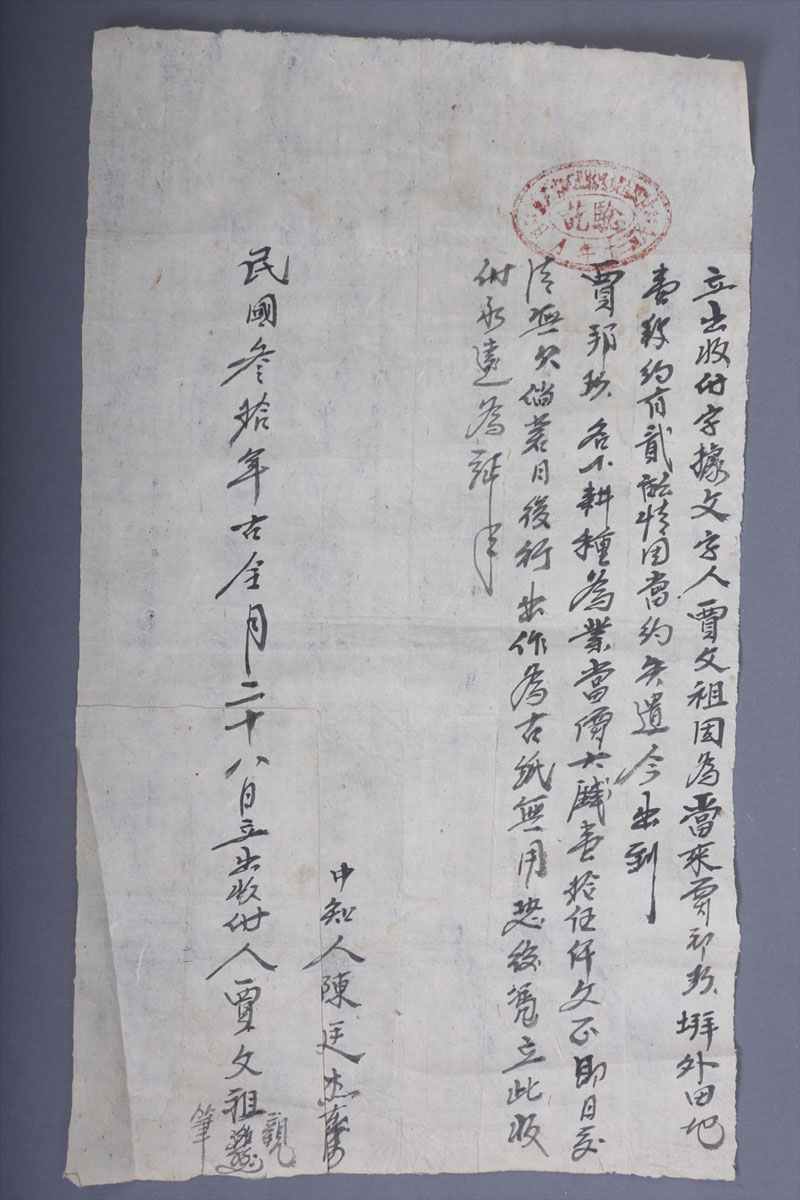 驗訖
立出收付字據文字人賈文祖因為當來賈邦玖垟外田地
壹段約有貳 情因當約失遺今出到
賈邦玖名下耕種為業當價大錢壹拾伍仟文正即日交
清無欠倘若日後行出作為古紙無用恐後憑立此收
付永遠為証
中知人陳廷杰
民國叁拾年古全月二十八日立出收付人賈文祖親筆